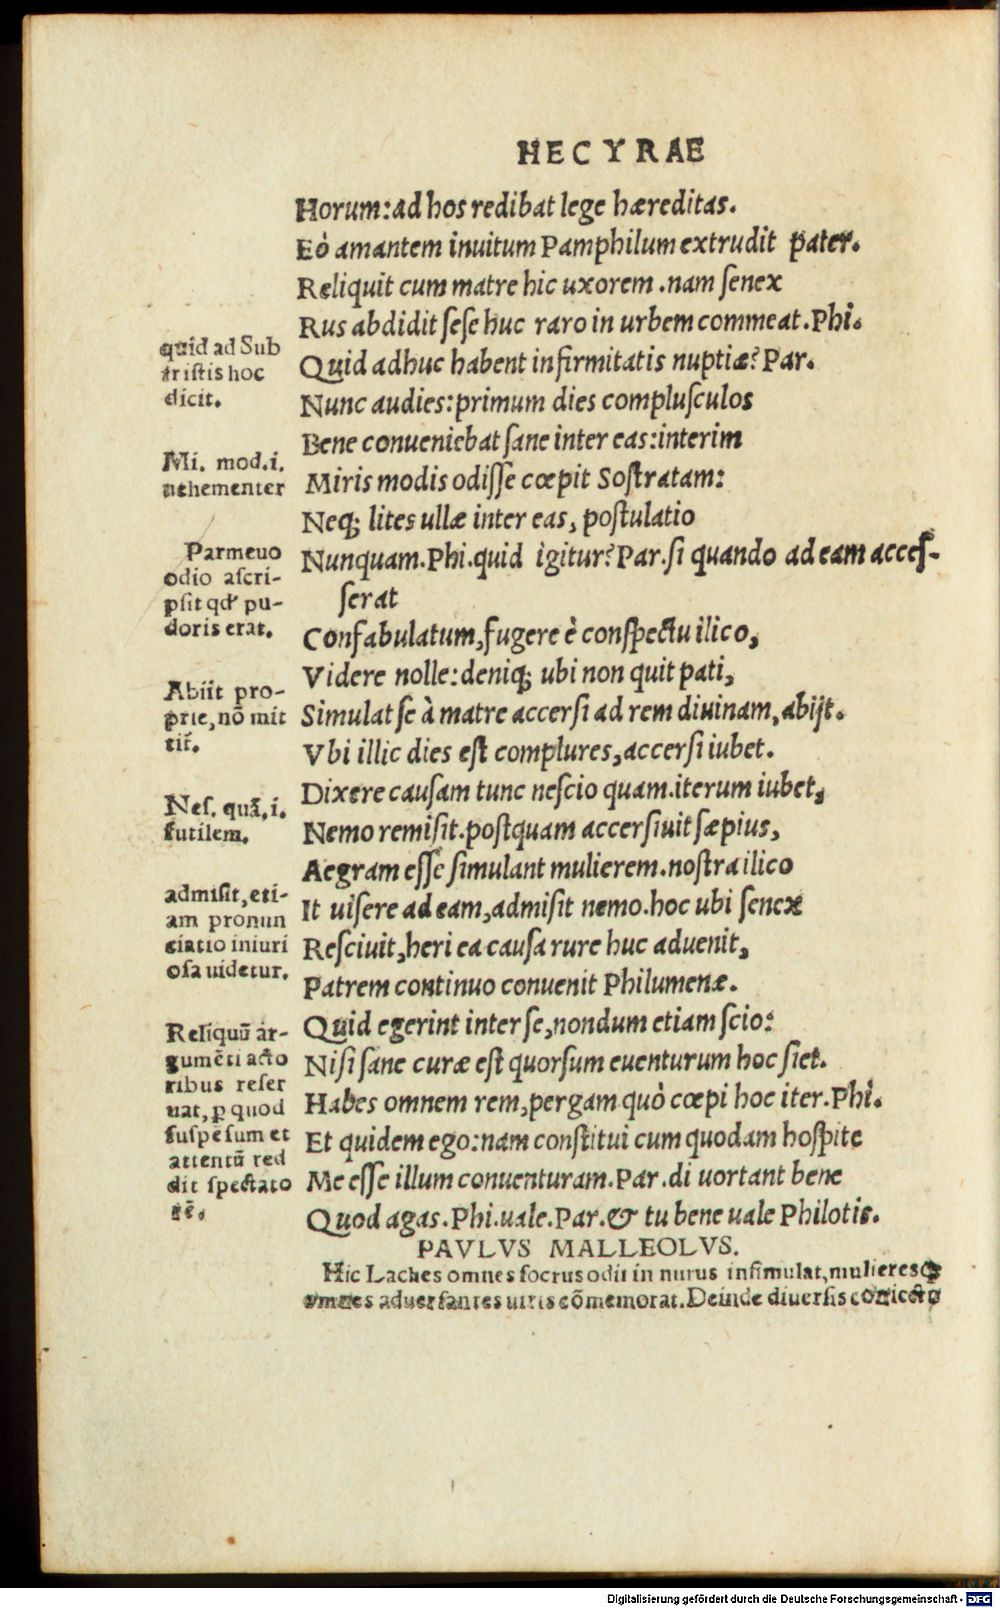 HECYRAE
Horum: ad hos redibat lege hæreditas.
Eò amantem inuitum Pamphilum extrudit pater.
Reliquit cum matre hic uxorem. nam ſenex
Rus abdidit ſeſe huc raro in urbem commeat. Phi.
Quid adhuc habent infirmitatis nuptiæ? Par.
Nunc audies: primum dies compluſculos
Bene conueniebat ſane inter eas: interim
Miris modis odiſſe cœpit Soſtratam:
Neq; lites ullæ inter eas, poſtulatio
Nunquam. Phi. quid igitur? Par. ſi quando ad eam acceſ-
ſerat
Confabulatum, fugere è conſpectu ilico,
Videre nolle: deniq; ubi non quit pati,
Simulat ſe à matre accerſi ad rem diuinam, abijt.
Vbi illic dies eſt complures, accerſi iubet.
Dixere cauſam tunc neſcio quam. iterum iubet,
Nemo remiſit. poſtquam accerſiuit ſæpius,
Aegram eſſe ſimulant mulierem. noſtra ilico
It uiſere ad eam, admiſit nemo. hoc ubi ſenex
Reſciuit, heri ea cauſa rure huc aduenit,
Patrem continuo conuenit Philumenæ.
Quid egerint inter ſe, nondum etiam ſcio:
Niſi ſane curæ eſt quorſum euenturum hoc ſiet.
Habes omnem rem, pergam quò cœpi hoc iter. Phi.
Et quidem ego: nam conſtitui cum quodam hoſpite
Me eſſe illum conuenturam. Par. di uortant bene
Quod agas. Phi. uale. Par. & tu bene uale Philotis.
PAVLVS MALLEOLVS.
Hic Laches omnes ſocrus odii in nurus inſimulat, mulieresq;
omnes aduerſantes uiris cōmemorat. Deinde diuerſis
quid ad Sub
triſtis hoc
dicit.
Mi. mod. i.
uehementer
Parmeuo
odio aſcri-
pſit qd' pu-
doris erat.
Abiit pro-
prie, nō mit
tit̃.
Neſ. quā, i.
futilem.
admiſit, eti-
am pronun
ciatio iniuri
oſa uidetur.
Reliquū ar-
gumēti acto
ribus reſer
uat, ꝑ quod
ſuſpēſum et
attentū red
dit ſpectato
rē.
Digitalisierung gefördert durch die Deutsche Forschungsgemeinschaft - DFG